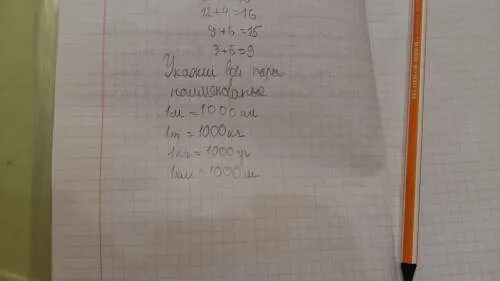 12+4=16
9+6=15
3+6=9
Укажи все пары
наименованье
1м = 1000 м
1т = 1000кг
1кг = 1000гр
1км = 1000м